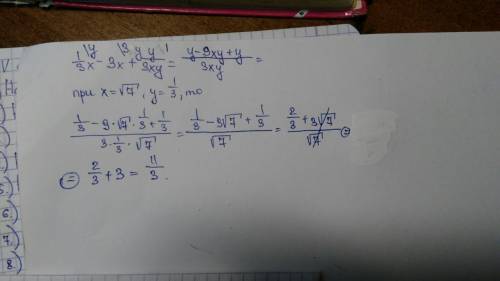 1/3x - 3x + y/3xy = (y-9xy+y)/3xy =
при x=√7, y=1/3, то
(1/3 - 9·√7·1/3 + 1/3)/(3·1/3·√7) = (1/3 - 3√7 + 1/3)/√7 = (2/3 + 3√7)/√7 =
= 2/3 + 3 = 11/3.
6.
7.
8.